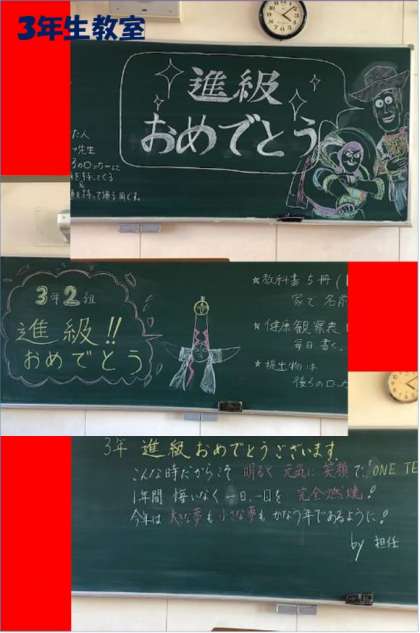 3年生教室
進級
おめでとう
た人
3年2組
進級!!
おめでとう
★教科書5冊
家で名前
★健康観察表
毎日書
★提出物は
後ろのロッ
3年 進級おめでとうございます。
こんな時だからこそ 明るく 元気に 笑顔で! ONE TE
1年間 悔いなく 一日、一日を 完全燃焼!
今年は 大きな夢も 小さな夢も かなう年であるように!
by 担任